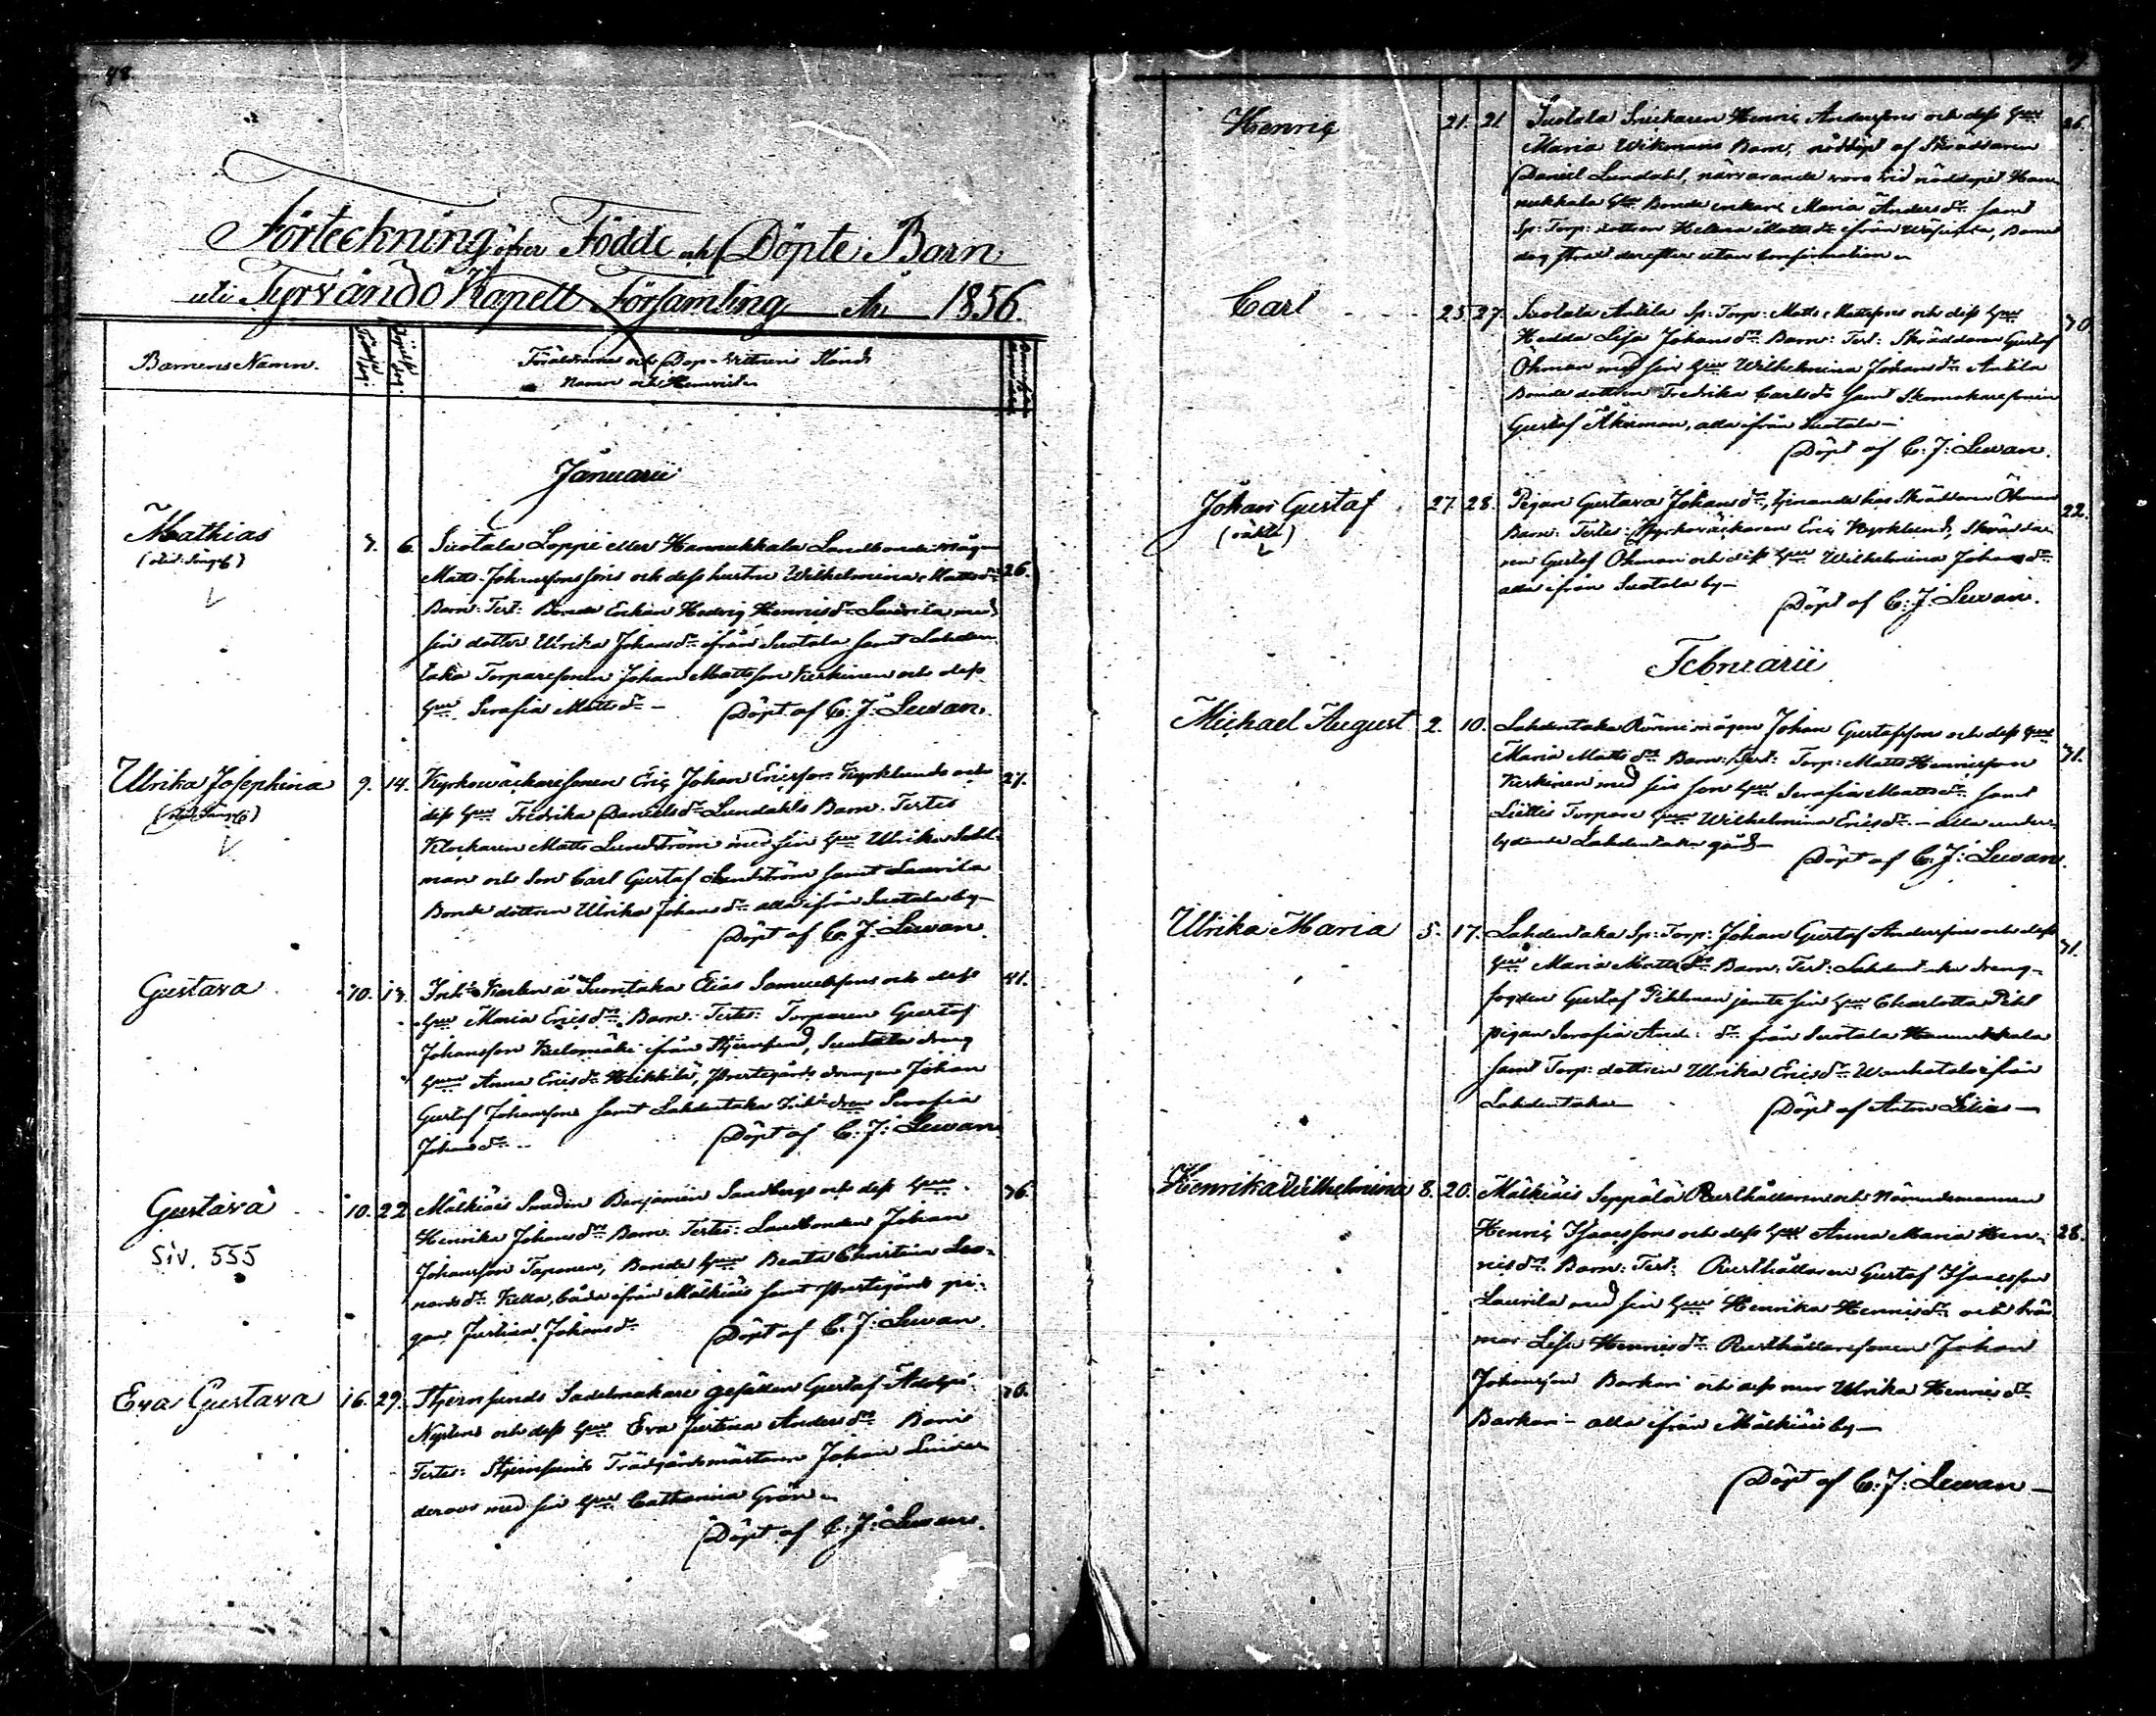 48.
Förteckning öfver Födde och Döpte Barn
uti Tyrvändö Kapell Församling År 1856.
Barnens Namn.
Födelse dag.
Föräldrarnas och Dop-Vittnens Stånd
Namn och Hemvist
Januarii
Mathias 6. Suotala Loppi eller Hannukkala Landbonde mågen
Matts Johanssons och dess hustru Wilhelmina Matts dr 26.
Barn: Test: Bonde Enkan Hedvig Henrics dr Laurila med
sin dotter Ulrika Johans dr ifrån Suotala samt Lahden-
taka Torparesonen Johan Mattsson Kerkinen och dess
Hru Serafia Matts dr – Döpt af C. J. Lewan.
Ulrika Josephina 9. 14. Kyrkoväckaresonen Eric Johan Ericsson Kyrklunds och 27.
dess Hru Fredrika Daniels dr Lundahls Barn. Testes
Klockaren Matts Lundström med sin Hru Ulrika Sahl-
man och Son Carl Gustaf Lundström samt Laurila
Bonde dottren Ulrika Johans dr alla ifrån Suotala by –
Döpt af C. J. Lewan.
Gustava 10. Suontaka Elias Samuelssons och dess 41.
Hru Maria Erics dr Barn. Testes: Torparen Gustaf
Johansson ifrån Stjernsund, Suotala dreng
Hrun Anna Erics dr Heikkilä, Prestegårds drengen Johan
Gustaf Johansson samt Lahdentaka Serafia
Johans dr – Döpt af C. J. Lewan.
Gustava 10. 22. Mälkiäis Smeden Benjamin Sandbergs och dess Hru 36.
Siv. 555 Henrika Johans dr Barn. Testes: Landbonden Johan
Johansson Taponen, Bonde Hru Beata Christina Leo-
nards dr Kella, båda ifrån Mälkiäis samt Prestegårds pi-
gan Justina Johans dr Döpt af C. J. Lewan.
Eva Gustava 16. 29. Stjernsunds Sadelmakare gesällen Gustaf Adolph
och dess Hru Eva Justina Anders dr Barn
Testes: Stjernsunds Trädgårdsmästaren Johan Linder
med sin Hru Catharina Grön –
Döpt af C. J. Lewan.
Henric 21. 21. Suotala Snickaren Henric Anderssons och dess Hru 26.
Maria Wikmans Barn, nöddöpt af Skräddaren
Daniel Lundahl, närvarande voro vid nöddopet Han-
nukkala Bonde enkan Maria Anders dr samt
Sp: Torp: dottren Helena Matts dr ifrån
derefter utan confirmation –
Carl 25. 27. Suotala Antila Sp: Torp: Matts Mattssons och dess Hru 30.
Hedda Lisa Johans dr Barn: Test: Skräddaren Gustaf
Öhman med sin Hru Wilhelmina Johans dr Antila
Bonde dottren Fredrika Carls dr samt Skomakaresonen
Gustaf Åkerman, alla ifrån Suotala –
Döpt af C. J. Lewan.
Johan Gustaf 27. 28. Pigan Gustava Johans dr, tjenande hos Skräddaren Öhman 22.
(oäkta) Barn: Testes: Kyrkoväckaren Eric Kyrklund, Skrädda-
ren Gustaf Öhman och dess Hru Wilhelmina Johans dr
alla ifrån Suotala by –
Döpt af C. J. Lewan.
Februarii
Michael August 2. 10. Lahdentaka mågen Johan Gustafssons och dess Hru 31.
Maria Matts dr Barn: Test: Torp: Matts Henricsson
Kerkinen med sin son Hru Serafia Matts dr samt
Torpare Hrun Wilhelmina Erics dr – alla under-
lydande Lahdentaka gård –
Döpt af C. J. Lewan.
Ulrika Maria 5. 17. Lahdentaka Sp: Torp: Johan Gustaf Anderssons och dess 31.
Hru Maria Matts dr Barn: Test: Lahdentaka dreng-
fogden Gustaf Pihlman jemte sin Hru Charlotta Pihl
pigan Serafia dr från Suotala Hannukkala
samt Torp: dottren Ulrika Erics dr ifrån
Lahdentaka – Döpt af Anton Lilius –
Henrika Wilhelmina 8. 20. Mälkiäis Seppälä Rusthållaren och Nämndemannen
Henric Isaacssons och dess Hru Anna Maria Hen- 28.
rics dr Barn: Test: Rusthållaren Gustaf Isaacsson
Laurila med sin Hru Henrika Henrics dr och
mor Lisa Henrics dr Rusthållaresonen Johan
Johansson Barkari och dess mor Ulrika Henrics dr
Barkari – alla ifrån Mälkiäis by –
Döpt af C. J. Lewan –